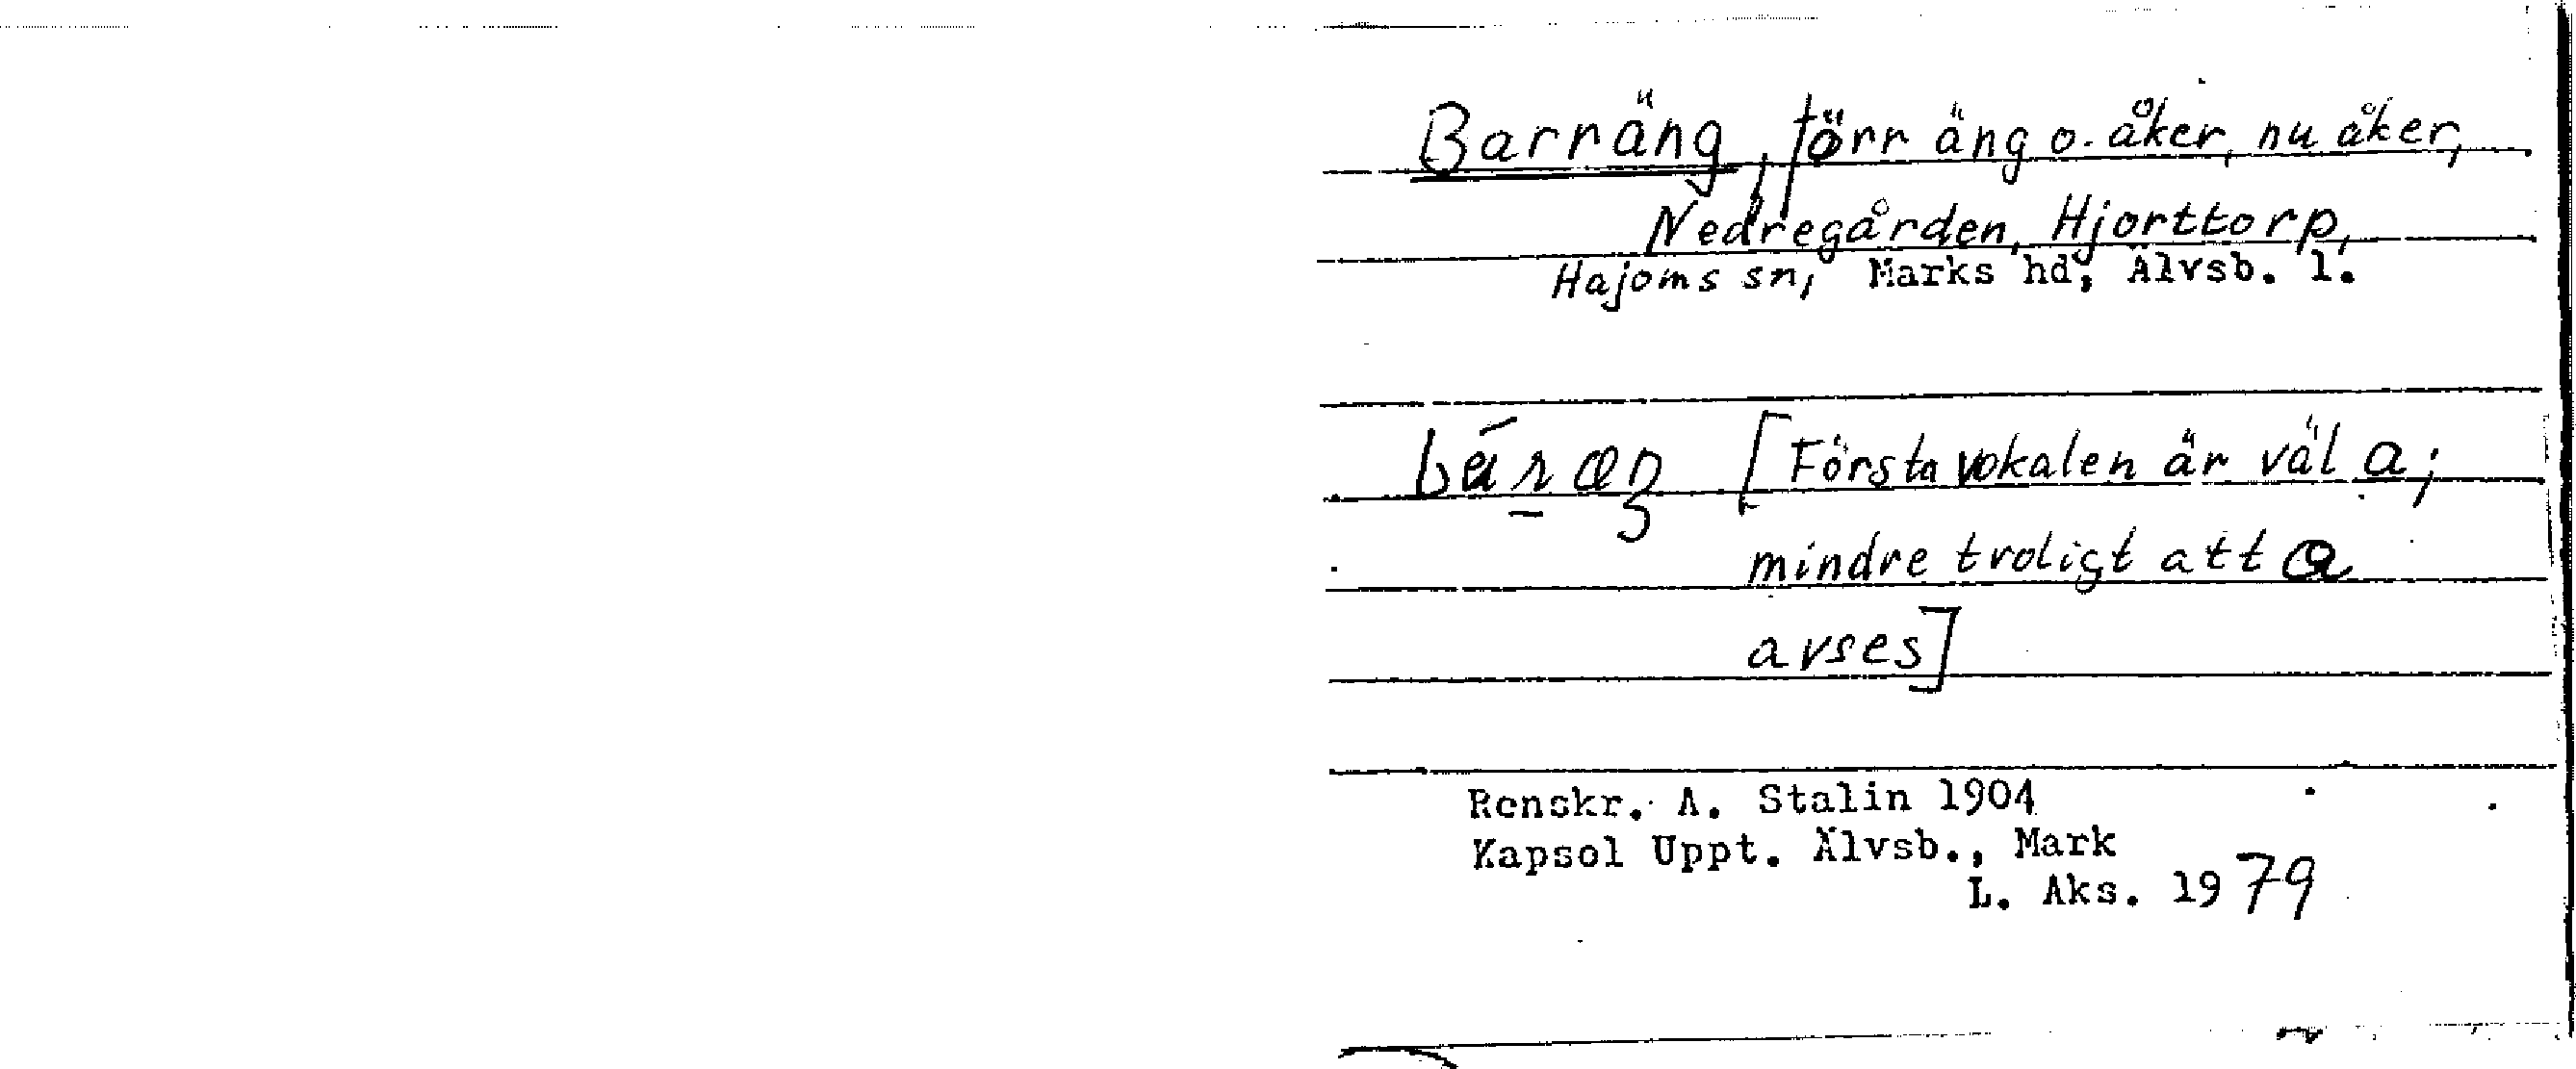 Barräng, förr äng o. åker, nu åker,
Nedregården, Hjorttorp,
Hajoms sn, Marks hd, Älvsb. l.
[Första vokalen är väl a;
mindre troligt att a
avses]
Renskr. A. Stalin 1904
Kapsel Uppt. Älvsb., Mark
L. Aks. 1979